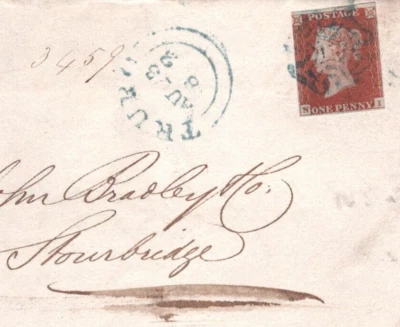 3459
TRURO
AU 3
POSTAGE
ONE PENNY
John Bradley & Co.
Stourbridge